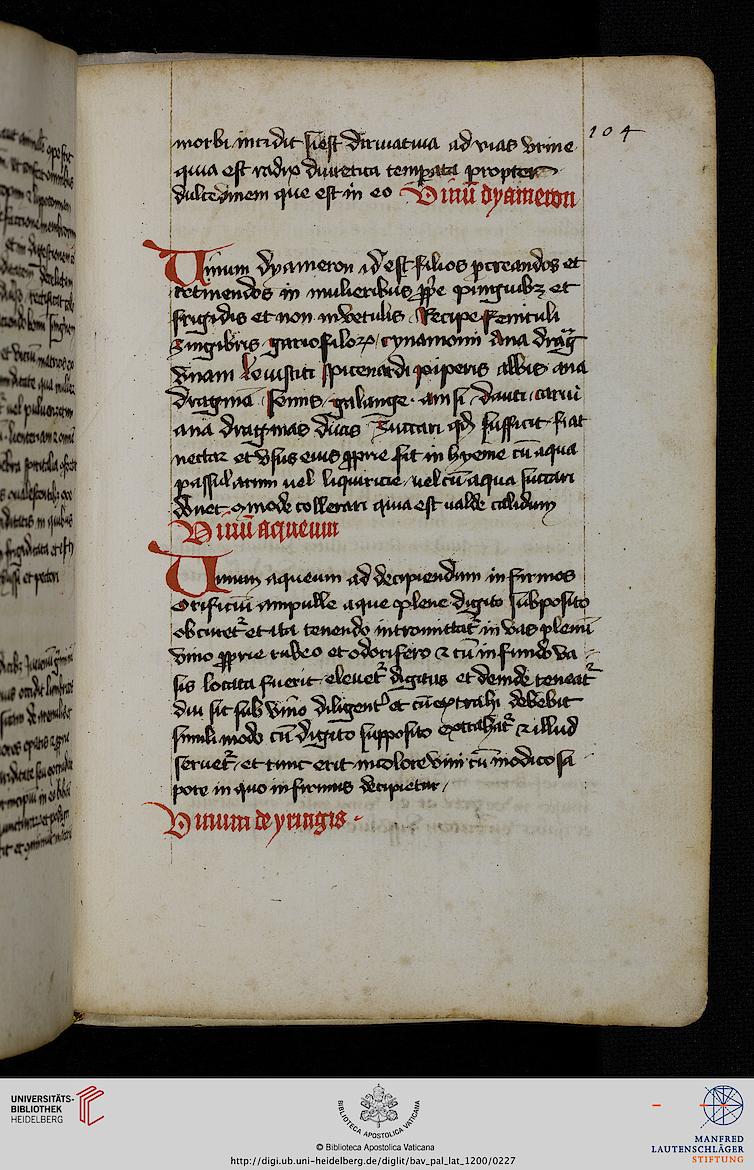 104
morbi incidit si est diriuatiua ad vias vrine
quia est radix diuretica temp̄ata propter
dulcedinem que est in eo Vinū dyameron
Vinum dyameron id est filios ꝓcreandos et
retinendos in mulieribus ꝓp̄e pinguibꝫ et
frigidis et non in vetulis Recipe feniculi
zingibris gariofiloꝝ cynamomi ana drag̃
vnam leuistici spicenardi piperis albis ana
dragma galange daucī carui
ana dragmas duas zuccari qd̄ sufficit fiat
nectar et vsus eius ꝓprie sit in hyeme cū aqua
passularum uel liquiricie uel cū aqua succari
quia est ualde calidum
Vinū aqueum
Vinum aqueum ad decipiendum infirmos
Orificiū ampulle aque plene digito subposito
obturetᷣ et ita tenendo intromittatᷣ in vas plenū
vino ꝓprie rubeo et odorifero ⁊ cū in fundo va
sis locata fuerit eleuetᷣ digitus et deinde teneatᷣ
diu sic sub vino diligentᷣ et cū extrahi debebit
simili modo cū digito supposito extrahatᷣ ⁊ illud
seruetᷣ et tunc erit in colore vini cū modico sa
pore in quo infirmus decipietur
Vinum de yringis
UNIVERSITÄTS-
BIBLIOTHEK
HEIDELBERG
BIBLIOTECA APOSTOLICA VATICANA
© Biblioteca Apostolica Vaticana
http://digi.ub.uni-heidelberg.de/diglit/bav_pal_lat_1200/0227
MANFRED
LAUTENSCHLÄGER
STIFTUNG